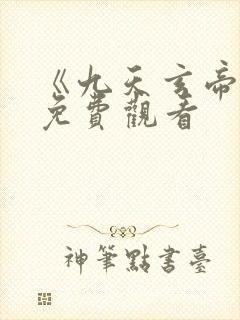 《九天玄帝
免費觀看
神筆點書臺